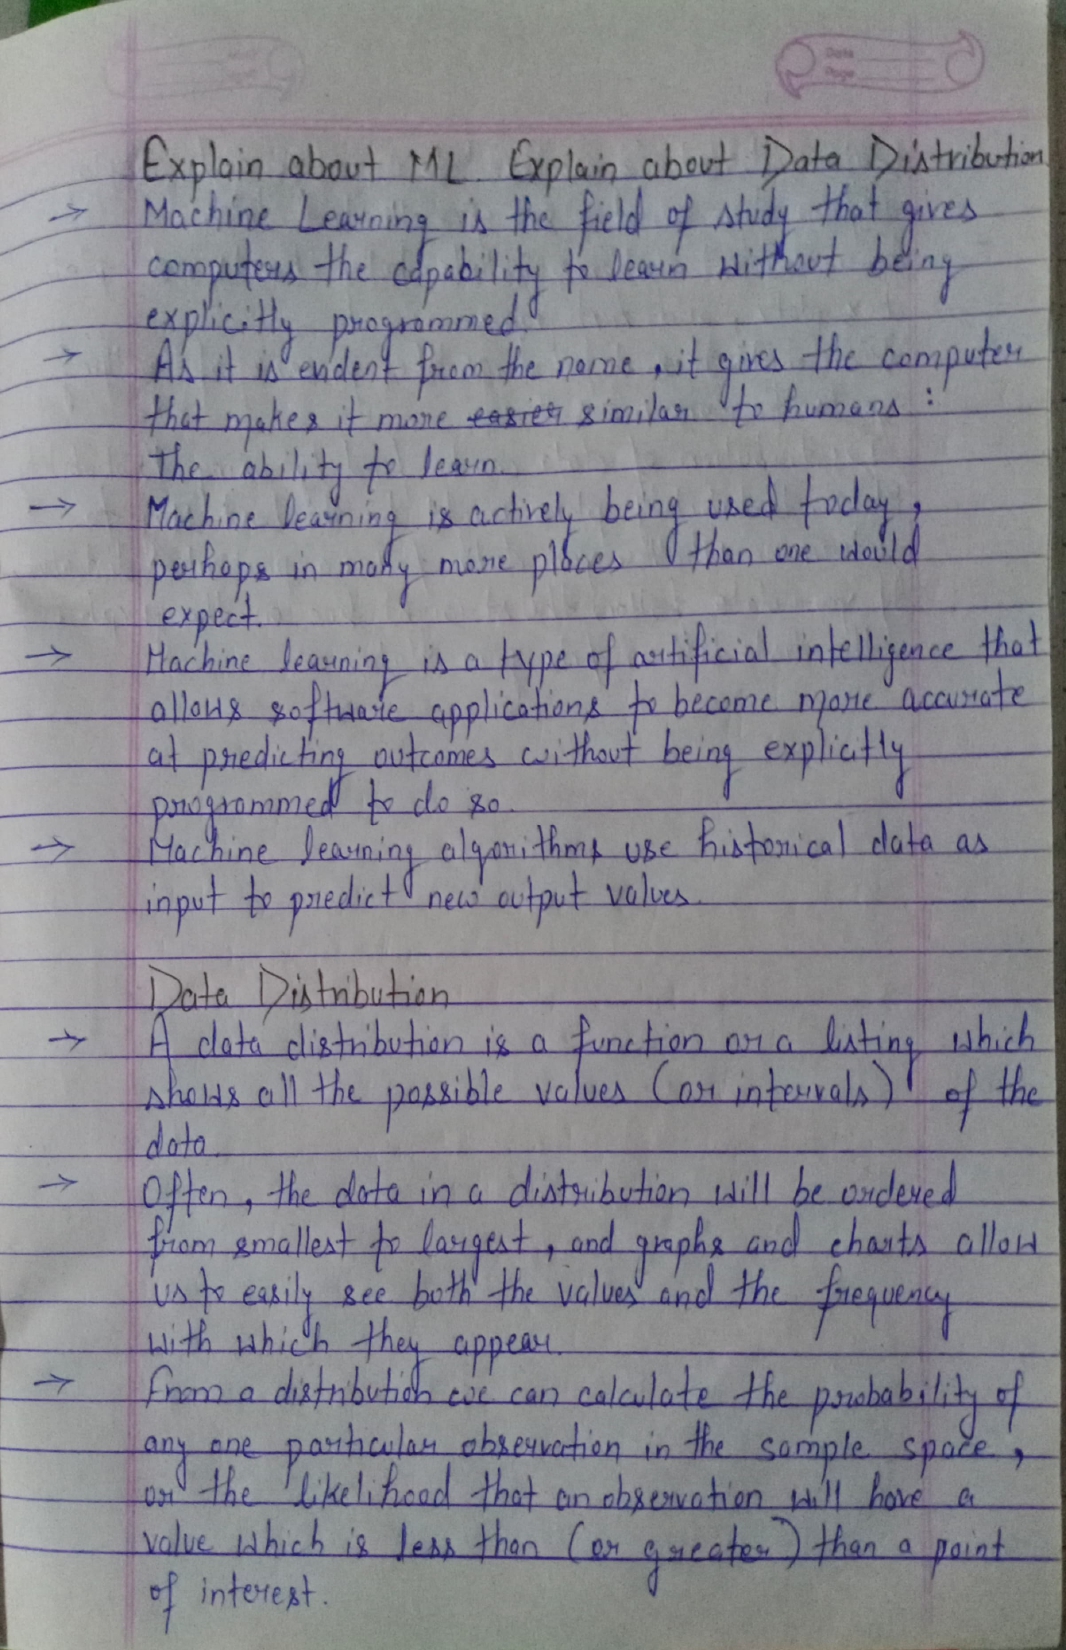 Date
Page
Explain about ML. Explain about Data Distribution
→ Machine Learning is the field of study that gives
computers the capability to learn without being
explicitly programmed.
→ As it is evident from the name, it gives the computer
that makes it more easier similar to humans :
The ability to learn.
→ Machine learning is actively being used today,
perhaps in many more places than one would
expect.
→ Machine learning is a type of artificial intelligence that
allows software applications to become more accurate
at predicting outcomes without being explicitly
programmed to do so.
→ Machine learning algorithms use historical data as
input to predict new output values.
Data Distribution
→ A data distribution is a function or a listing which
shows all the possible values (or intervals) of the
data.
→ Often, the data in a distribution will be ordered
from smallest to largest, and graphs and charts allow
us to easily see both the values and the frequency
with which they appear.
→ From a distribution we can calculate the probability of
any one particular observation in the sample space,
or the likelihood that an observation will have a
value which is less than (or greater) than a point
of interest.